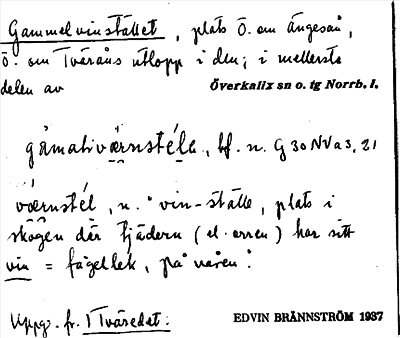 Gammelvinstället, plats ö. om Ängesån,
ö. om Tväråns utlopp i den; i mellersta
delen av Överkalix sn o. tg Norrb. l.
gåmativärnstéle, bf. n. G 30 NV a 3, 21
värnstél, n. "vin-ställe, plats i
skogen där tjädern (el. orren) har sitt
vin = fågellek, på våren".
Uppg. fr. Tväredet.
EDVIN BRÄNNSTRÖM 1937